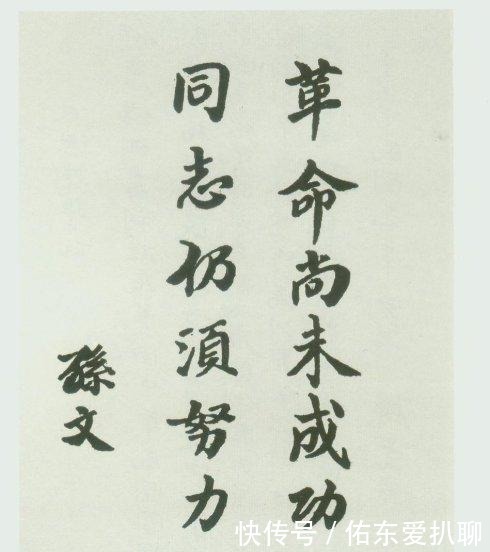 革命尚未成功
同志仍須努力
孫文
快传号/佑东爱扒聊